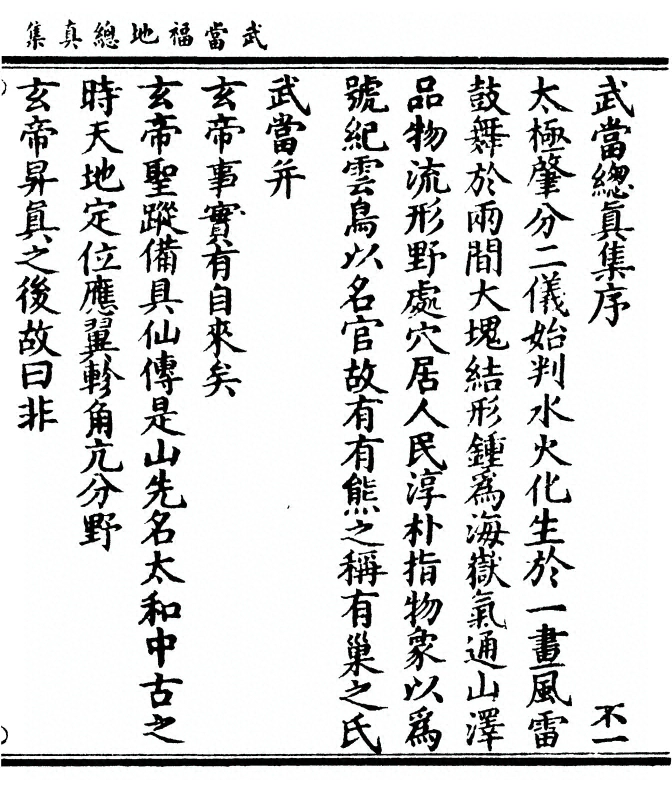 武當福地總真集
武當總眞集序 不一
太極肇分二儀始判水火化生於一畫風雷
鼓舞於兩間大塊結形鍾爲海嶽氣通山澤
品物流形野處穴居人民淳朴指物象以爲
號紀雲鳥以名官故有有熊之稱有巢之氏
武當并
玄帝事實有自來矣
玄帝聖蹤備具仙傳是山先名太和中古之
時天地定位應翼軫角亢分野
玄帝昇眞之後故曰非